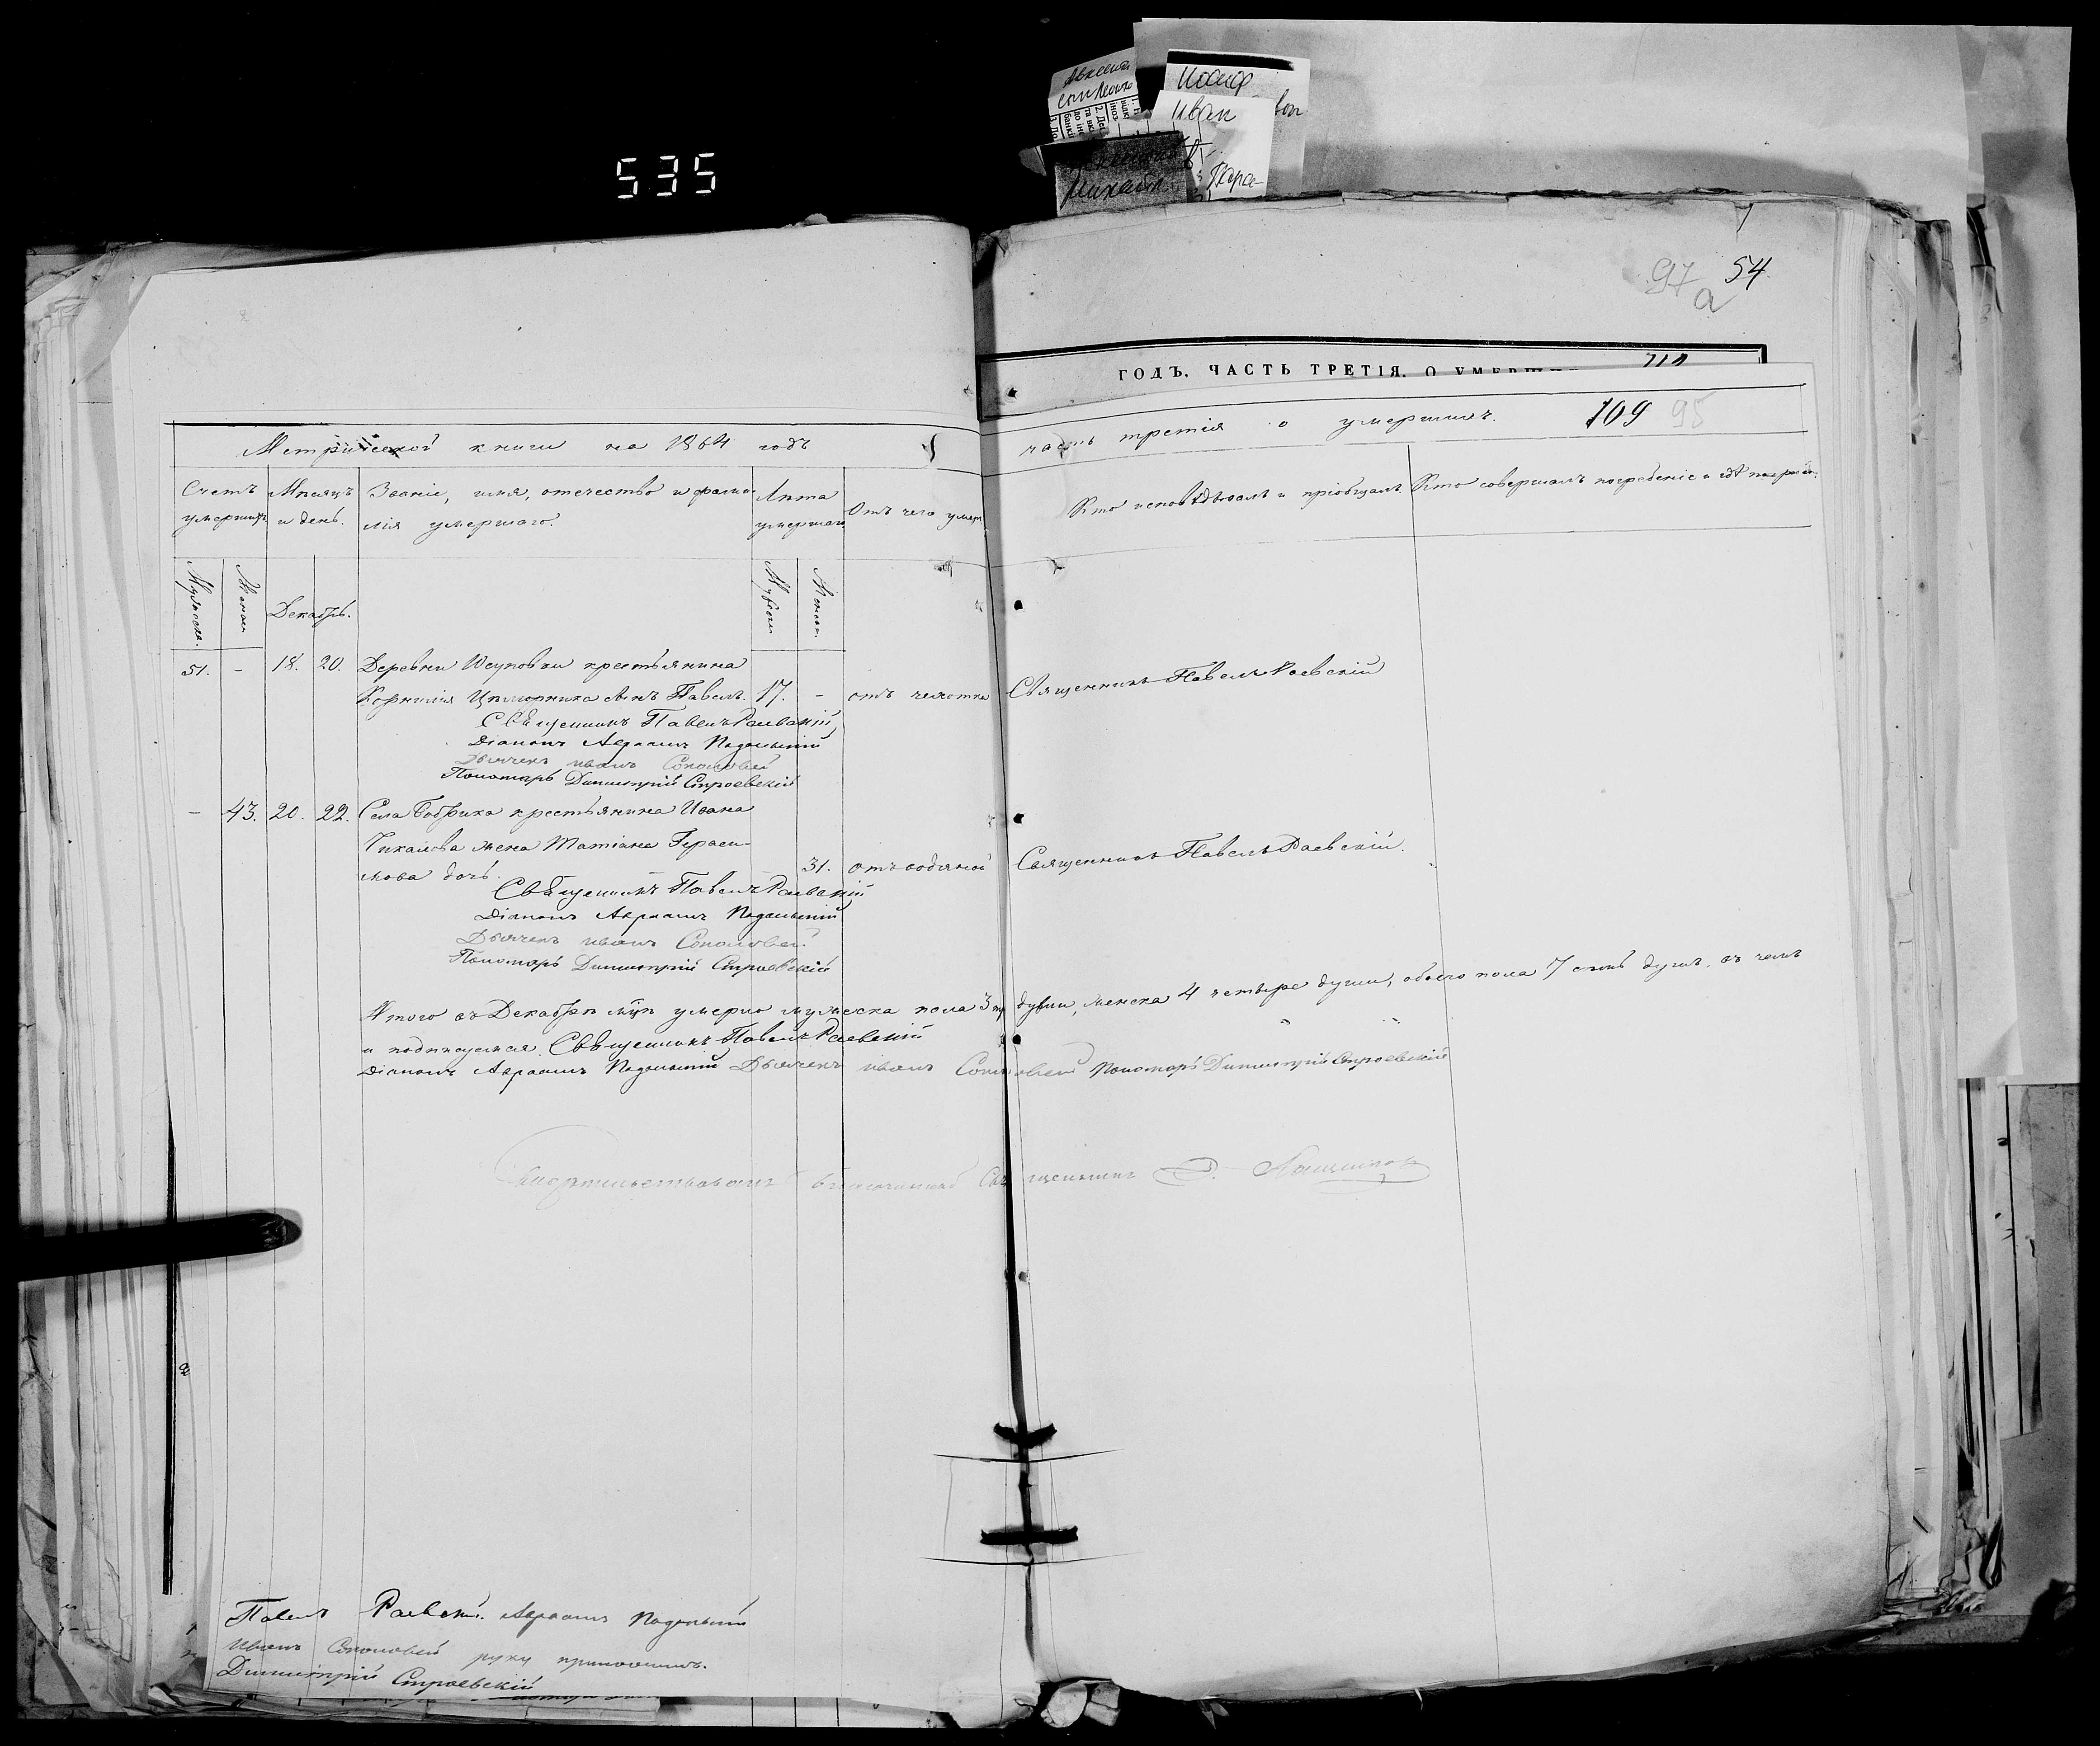 535
Иван
97 54
а
ГОДЪ. ЧАСТЬ ТРЕТІЯ. О
Метрической книги на 1864 годъ
часть третія о умершихъ. 109 95
Счетъ умершихъ
Мѣсяцъ и день.
Званіе, имя, отечество и фамилія умершаго.
Лѣта умершаго
Отъ чего умеръ
Кто исповѣдывалъ и пріобщалъ.
Кто совершалъ погребеніе и гдѣ
Мужеска.
Женска
Декабрь.
51. - 18. 20. Деревни Юсуповки крестьянина
Корнилія сынъ Павелъ. 17. - отъ чахотки Священникъ Павелъ Раевскій
Священникъ Павелъ Раевскій
Діаконъ Авраамъ Подольскій
Дьячекъ Иванъ Соколовскій
Пономарь Димитрій Строевскій
- 43. 20. 22. Села Бобрика крестьянина Ивана
Чикалова жена Татіана Гераси-
мова дочь. 31. отъ водяной Священникъ Павелъ Раевскій.
Священникъ Павелъ Раевскій
Діаконъ Авраамъ Подольскій
Дьячекъ Иванъ
Пономарь Димитрій Строевскій
Итого въ Декабрѣ мцѣ умерло мужеска пола 3 три души, женска 4 четыре души, обоего пола 7 семь душъ. въ чемъ
и подписуемся. Священникъ Павелъ Раевскій
Діаконъ Авраамъ Подольскій Дьячекъ Иванъ Пономарь Димитрій Строевскій
Свидѣтельствовалъ благочинный Священникъ
Павелъ Раевскій. Авраамъ Подольскій
Иванъ руку приложилъ.
Димитрій Строевскій